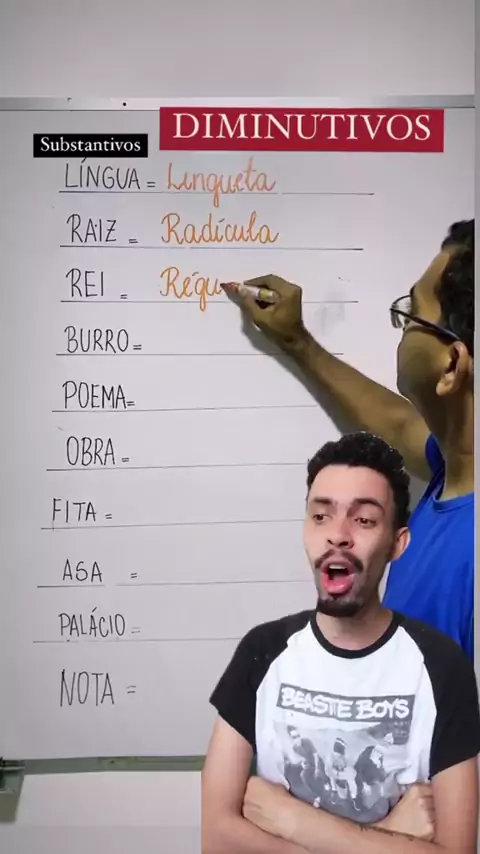 DIMINUTIVOS
Substantivos
LÍNGUA = Lingueta
RAIZ = Radícula
REI = Régu
BURRO=
POEMA=
OBRA =
FITA =
ASA =
PALÁCIO=
NOTA =
BEASTIE BOYS